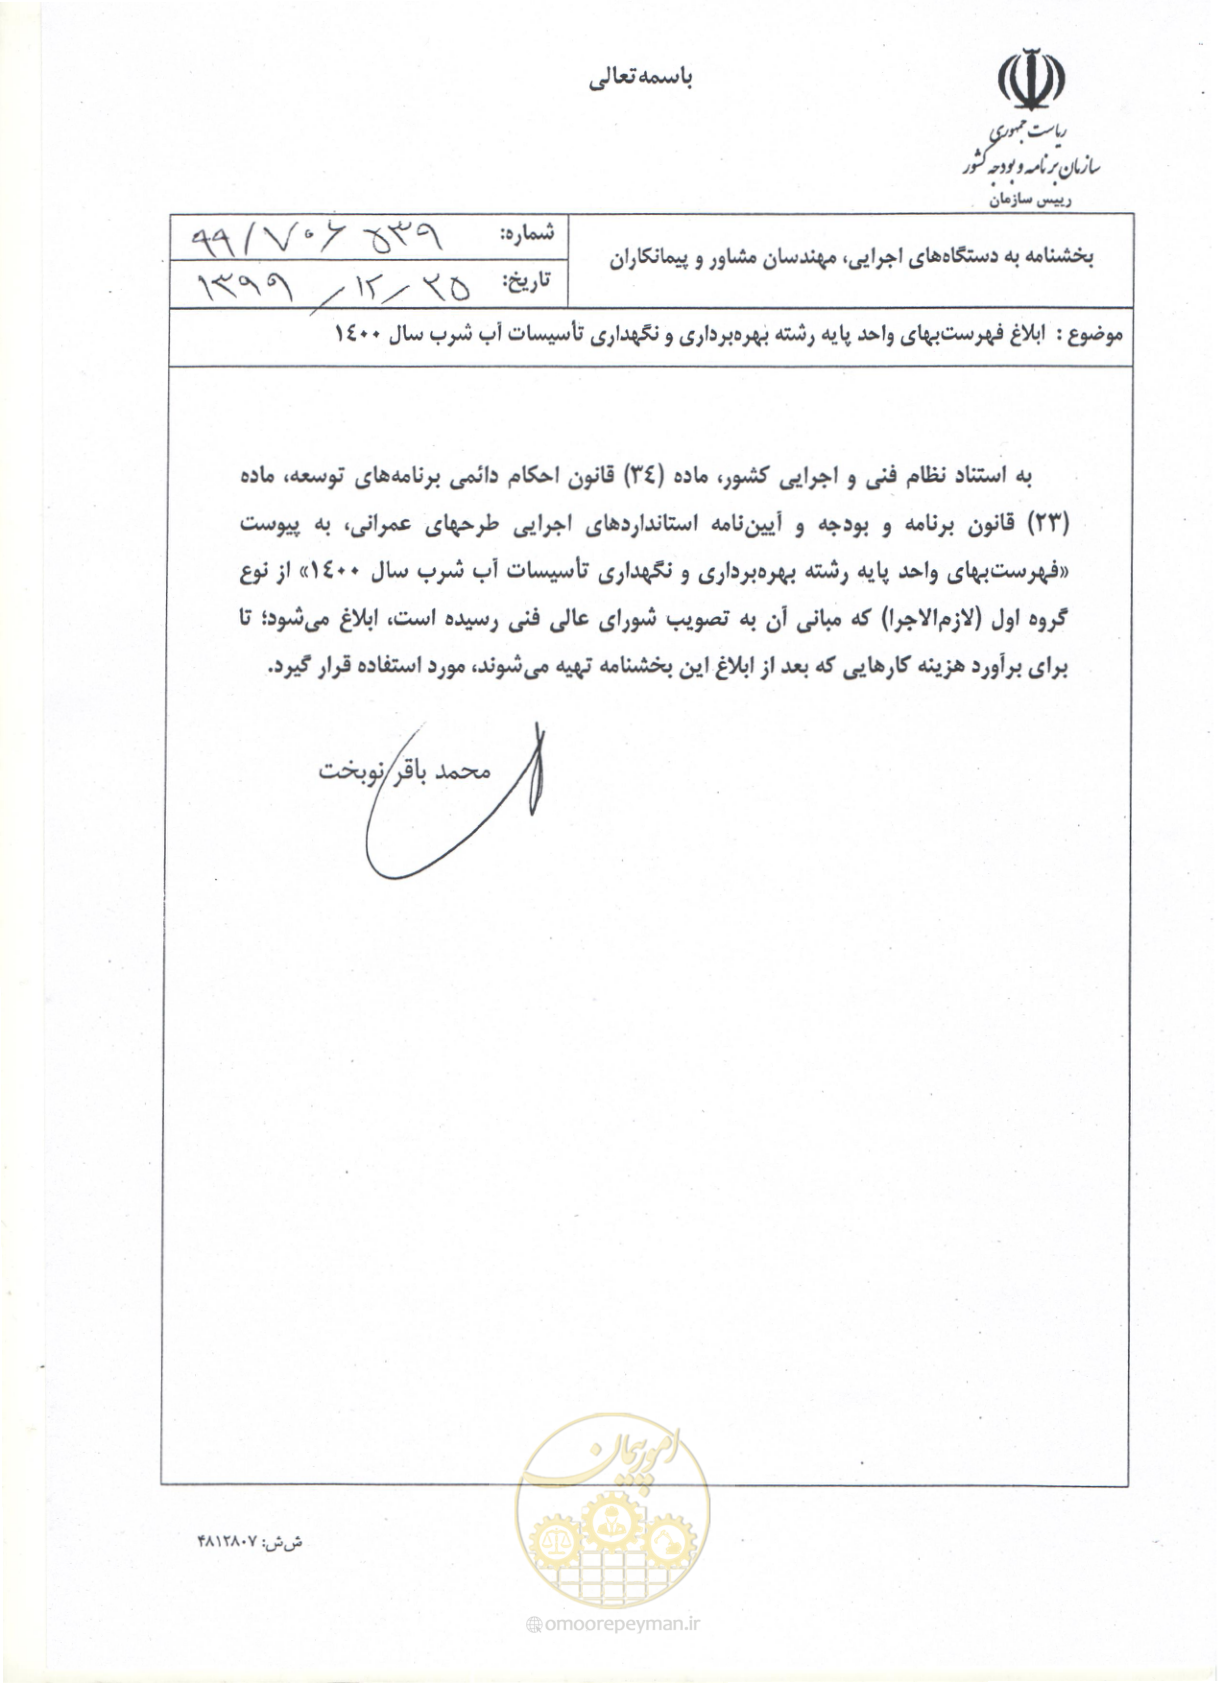 باسمه تعالی
ریاست جمهوری
سازمان برنامه و بودجه کشور
رییس سازمان
بخشنامه به دستگاه‌های اجرایی، مهندسان مشاور و پیمانکاران
شماره: ۹۹/۷۰۶۵۳۹
تاریخ: ۱۳۹۹/۱۲/۲۵
موضوع : ابلاغ فهرست‌بهای واحد پایه رشته بهره‌برداری و نگهداری تأسیسات آب شرب سال ۱۴۰۰
به استناد نظام فنی و اجرایی کشور، ماده (۳۴) قانون احکام دائمی برنامه‌های توسعه، ماده
(۲۳) قانون برنامه و بودجه و آیین‌نامه استانداردهای اجرایی طرحهای عمرانی، به پیوست
«فهرست‌بهای واحد پایه رشته بهره‌برداری و نگهداری تأسیسات آب شرب سال ۱۴۰۰» از نوع
گروه اول (لازم‌الاجرا) که مبانی آن به تصویب شورای عالی فنی رسیده است، ابلاغ می‌شود؛ تا
برای برآورد هزینه کارهایی که بعد از ابلاغ این بخشنامه تهیه می‌شوند، مورد استفاده قرار گیرد.
محمد باقر نوبخت
امور پیمان
ش‌ش: ۴۸۱۲۸۰۷
omoorepeyman.ir